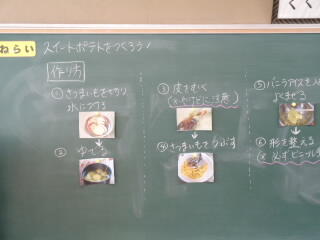 ねらい
スイートポテトをつくろう!
作り方
① さつまいもを切り
水につける
② ゆでる
③ 皮をむく
(※やけどに注意)
④ さつまいもをつぶす
⑤ バニラアイスを入
よくまぜる
⑥ 形を整える
(※ 必ずビニール手
くく